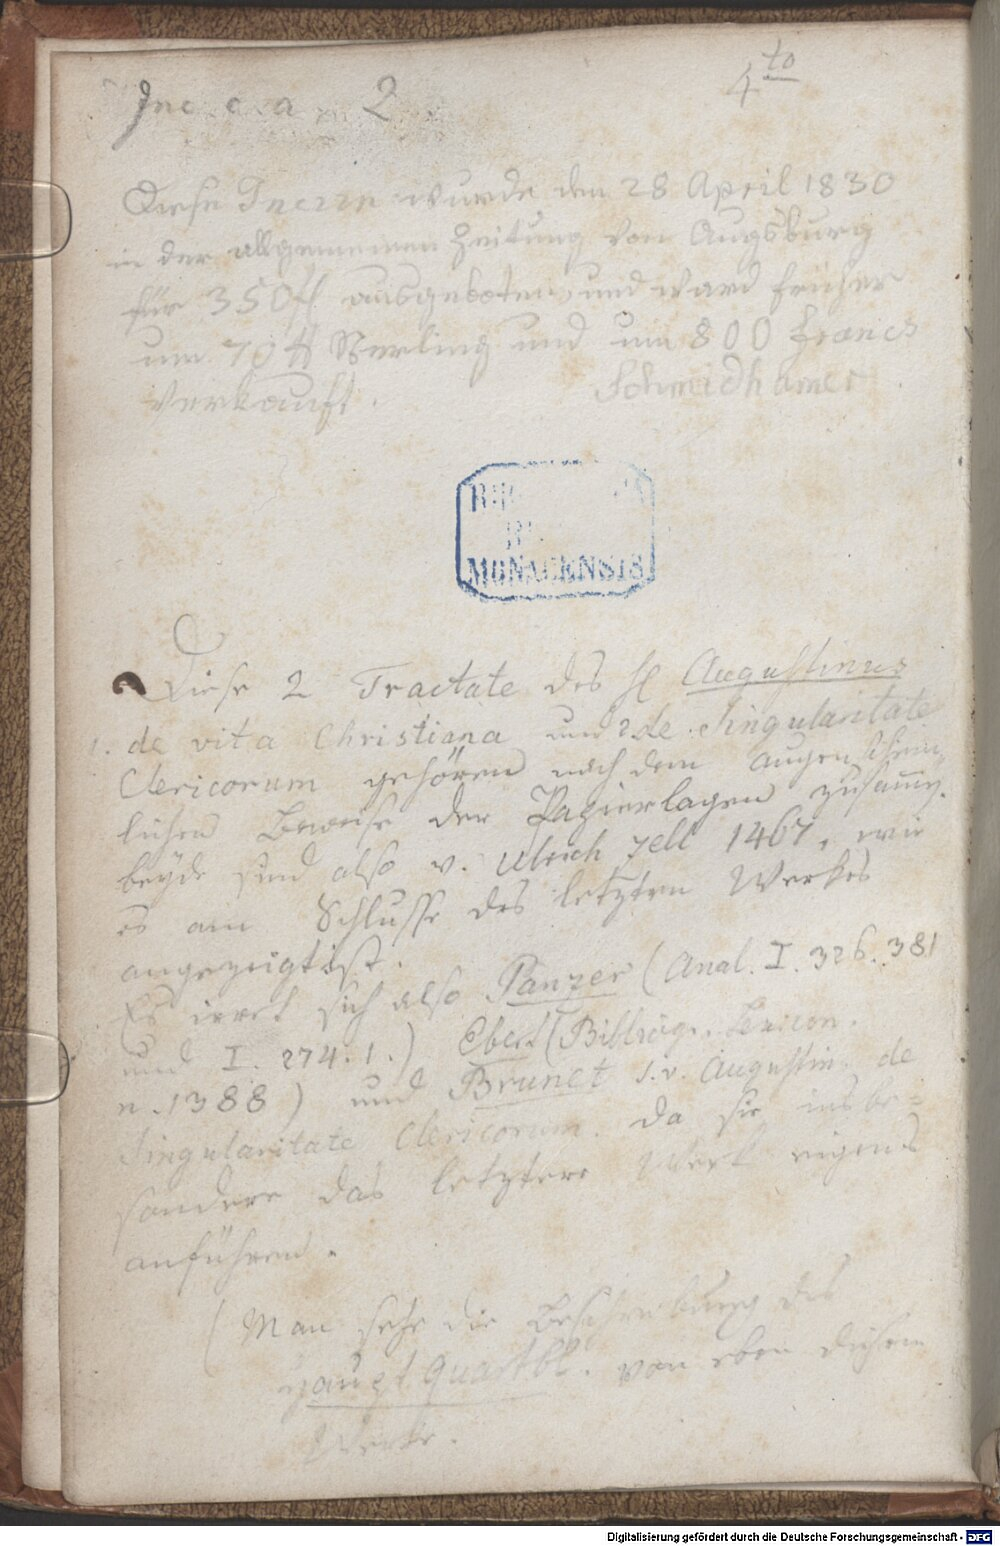 Inc. c. a. 2
4<sup>to</sup>
Diese wurde den 28 April 1830
in der allgemeinen Zeitung von Augsburg
für 350 fl ausgeboten, und ward früher
um 70 ₶ Sterling und um 800 Francs
verkauft.
Schmidhamer
MONACENSIS
Diese 2 Tractate des hl Augustinus
1. de vita Christiana und 2. de Singularitate
Clericorum gehören nach dem augenschein-
lichen Beweise der Papierlagen zusammen.
beyde sind also v. Ulrich Zell 1467, wie
es am Schlusse des letzten Werkes
angezeigt ist.
Es irret sich also Panzer (Anal. I. 326. 381
und I. 274. 1.) Ebert (Bibliogr. Lexicon.
n. 1388) und Brunet s. v. Augustin. de
Singularitate Clericorum. da sie insbe-
sondere das letztere Werk eigens
anführen.
(Man sehe die Beschreibung des
von eben diesem
Werke.
Digitalisierung gefördert durch die Deutsche Forschungsgemeinschaft - DFG